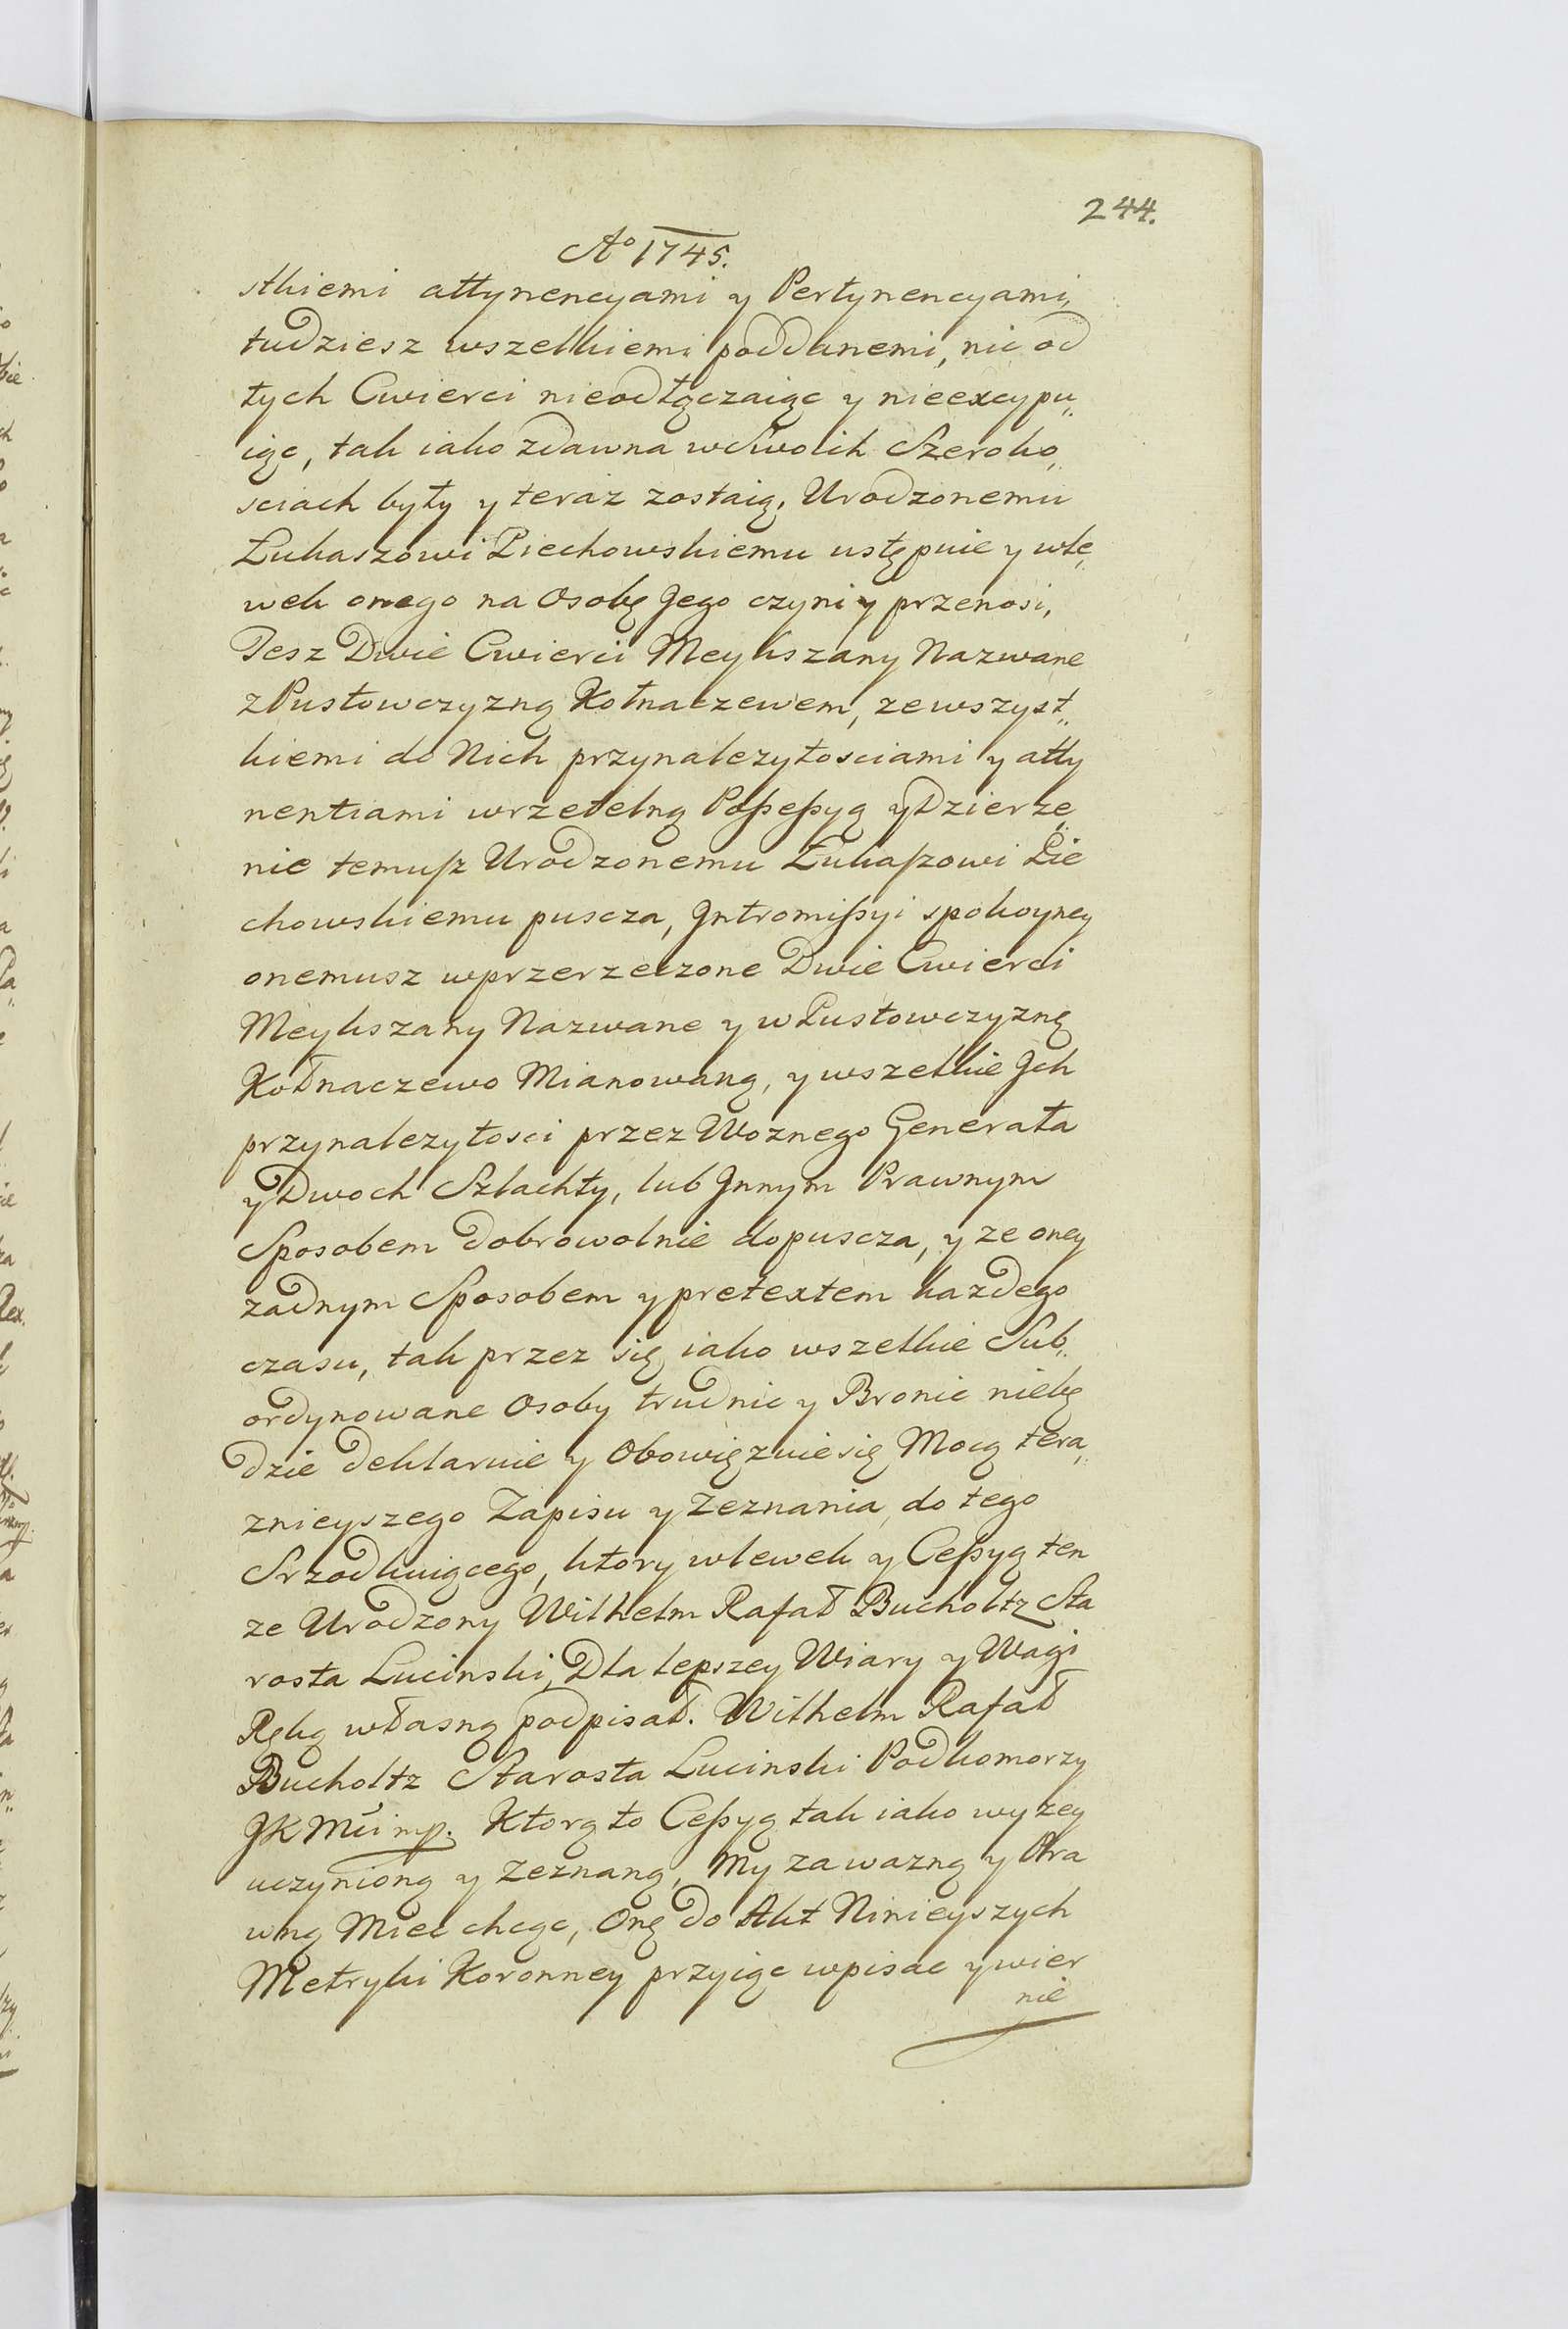 244.
Aº 1745.
stkiemi attynencyami y Pertynencyami,
tudziesz wszelkiemi poddanemi, nic od
tych Cwierci nieodłączaiąc y nieexcypu„
iąc, tak iako zdawna wswoich Szeroko„
sciach były y teraz zostaią, Urodzonemu
Łukaszowi Piechowskiemu ustępuie y wle„
wek onego na Osobę Jego czyni y przenosi,
Tesz Dwie Cwierci Meykszany Nazwane
z Pustowczyzną Kołnaczewem, zewszyst„
kiemi do Nich przynalezytosciami y atty
nentiami wrzetelną Possessyą y Dzierze„
nie temusz Urodzonemu Łukaszowi Pie
chowskiemu puscza, Intromissyi spokoyney
onemusz wprzerzeczone Dwie Cwierci
Meykszany Nazwane y w Pustowczyznę
Kołnaczewo Mianowaną, y wszelkie Ich
przynalezytosci przez Woznego Generała
y Dwoch Szlachty, lub Innym Prawnym
Sposobem dobrowolnie dopuscza, y ze oney
zadnym Sposobem y pretextem kazdego
czasu, tak przez się iako wszelkie Sub„
ordynowane Osoby trudnic y Bronic niebę
dzie deklaruie y Obowięzuie się Mocą tera„
znieyszego Zapisu y Zeznania, do tego
Srzodkuiącego, ktory wlewek y Cessyą ten
ze Urodzony Wilhelm Rafał Bucholtz Sta
rosta Lucinski, Dla lepszey Wiary y Wagi
Ręką własną podpisał. Wilhelm Rafał
Bucholtz Starosta Lucinski Podkomorzy
JKMci mp. Ktorą to Cessyą tak iako wyzey
uczynioną y Zeznaną, My za wazną y Pra
wną Miec chcąc, Onę do Akt Ninieyszych
Metryki Koronney przyiąc wpisac y wier
nie